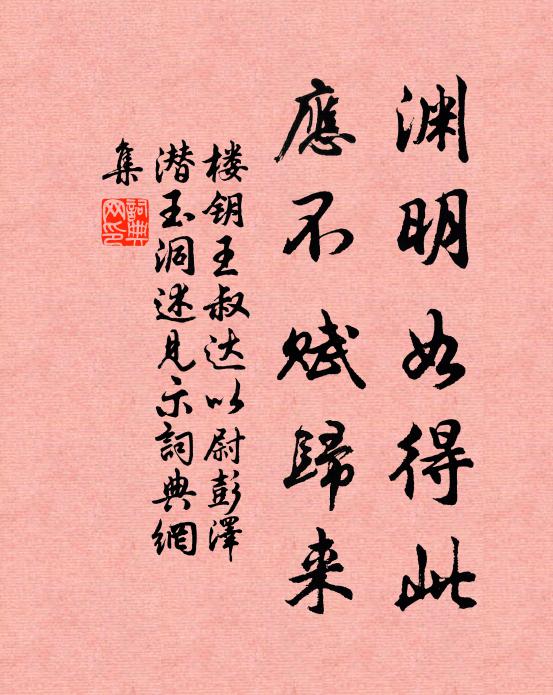 渊明如得此
應不赋歸来
楼钥王叔达以尉彭澤
潜玉洞述見示詞典網
集
詞典網印